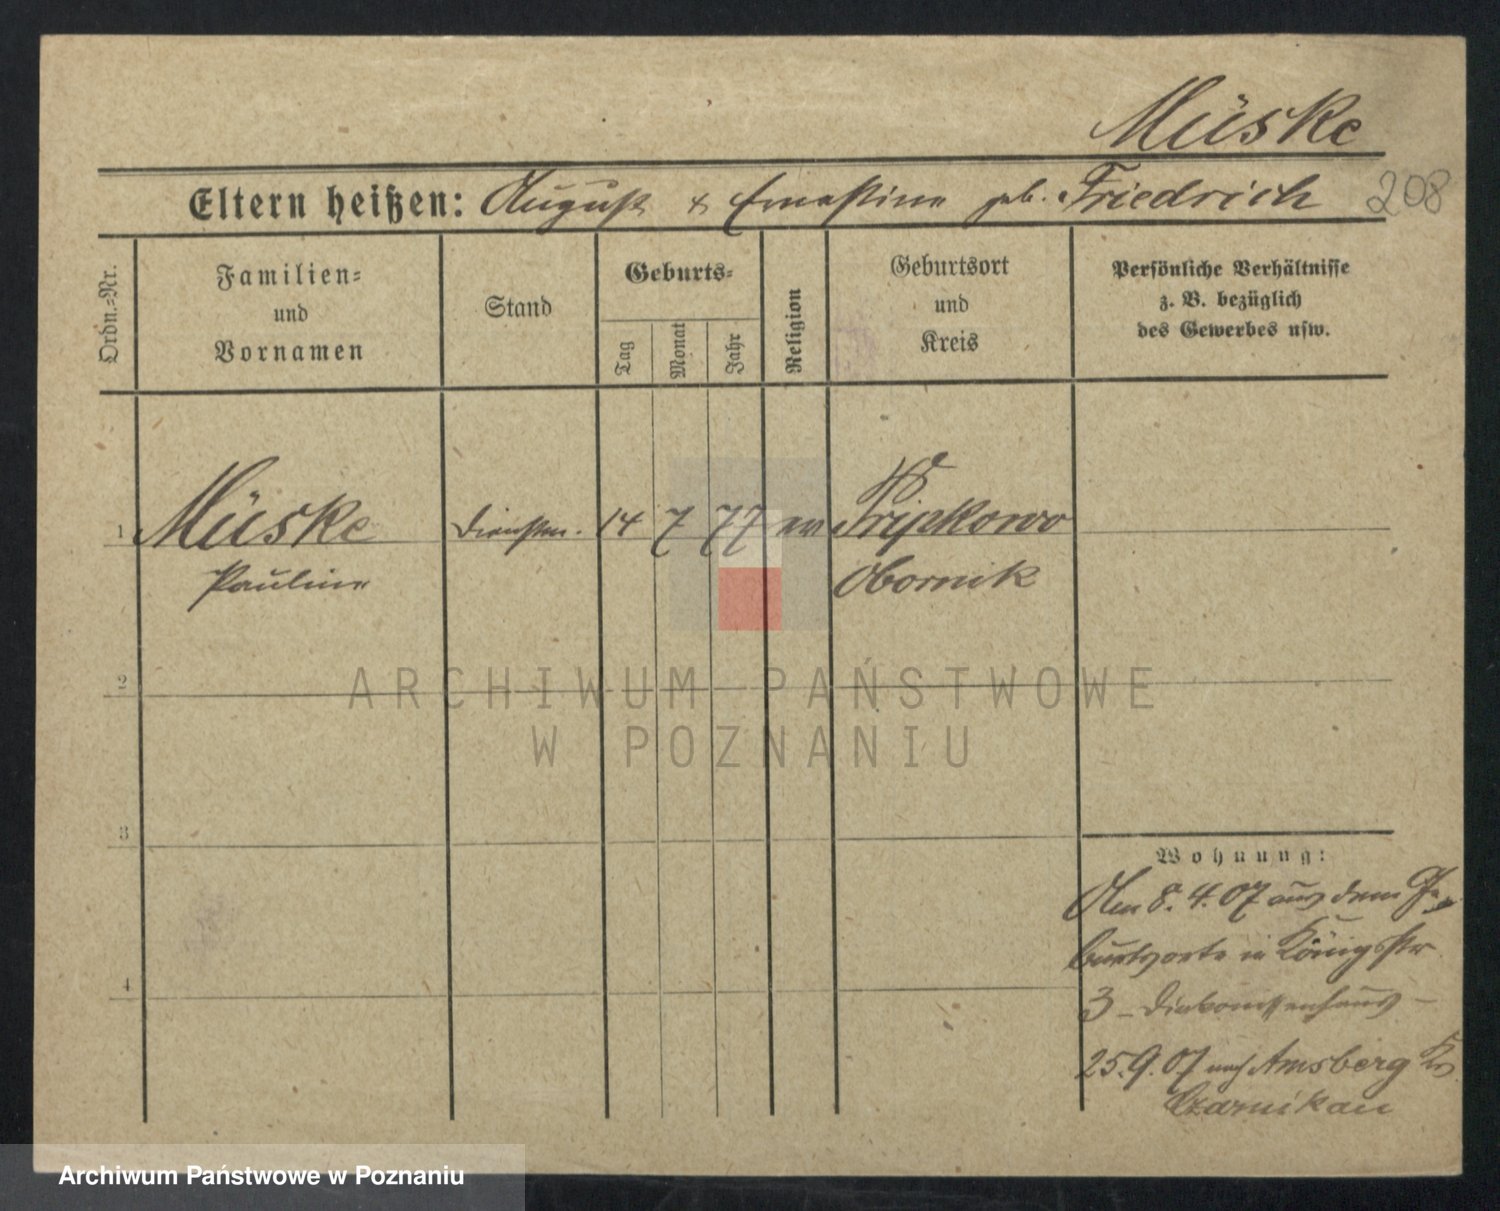 Müske
Eltern heißen: August & Ernestine geb. Friedrich 208
Ordn.-Nr.
Familien-
und
Vornamen
Stand
Geburts-
Tag
Monat
Jahr
Religion
Geburtsort
und
Kreis
Persönliche Verhältnisse
z. B. bezüglich
des Gewerbes usw.
1 Müske Dienstm. 14 7 77 ev
Pauline Obornik
2
3
4
Wohnung:
Am 8. 4. 07 aus dem Ge-
burtsorte in Königsstr
3 - Diakonissenhaus -
25. 9. 07 nach Amsberg Kr.
Czarnikau
ARCHIWUM PAŃSTWOWE
W POZNANIU
Archiwum Państwowe w Poznaniu